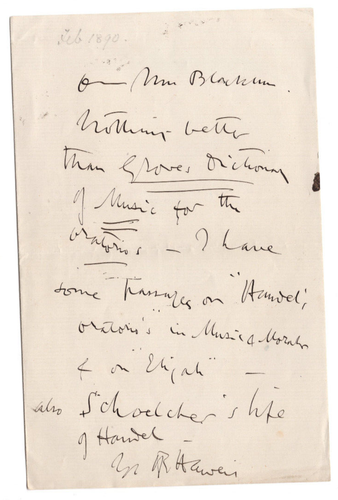 Feb 1890.
Mrs Blackburn.
Nothing better
than Groves Dictionary
of Music for the
oratorios — I have
some passages on "Handel's
oratorio's" in Music & Morals
& on "Elijah" —
also Schoelcher's life
of Handel —
HR Haweis